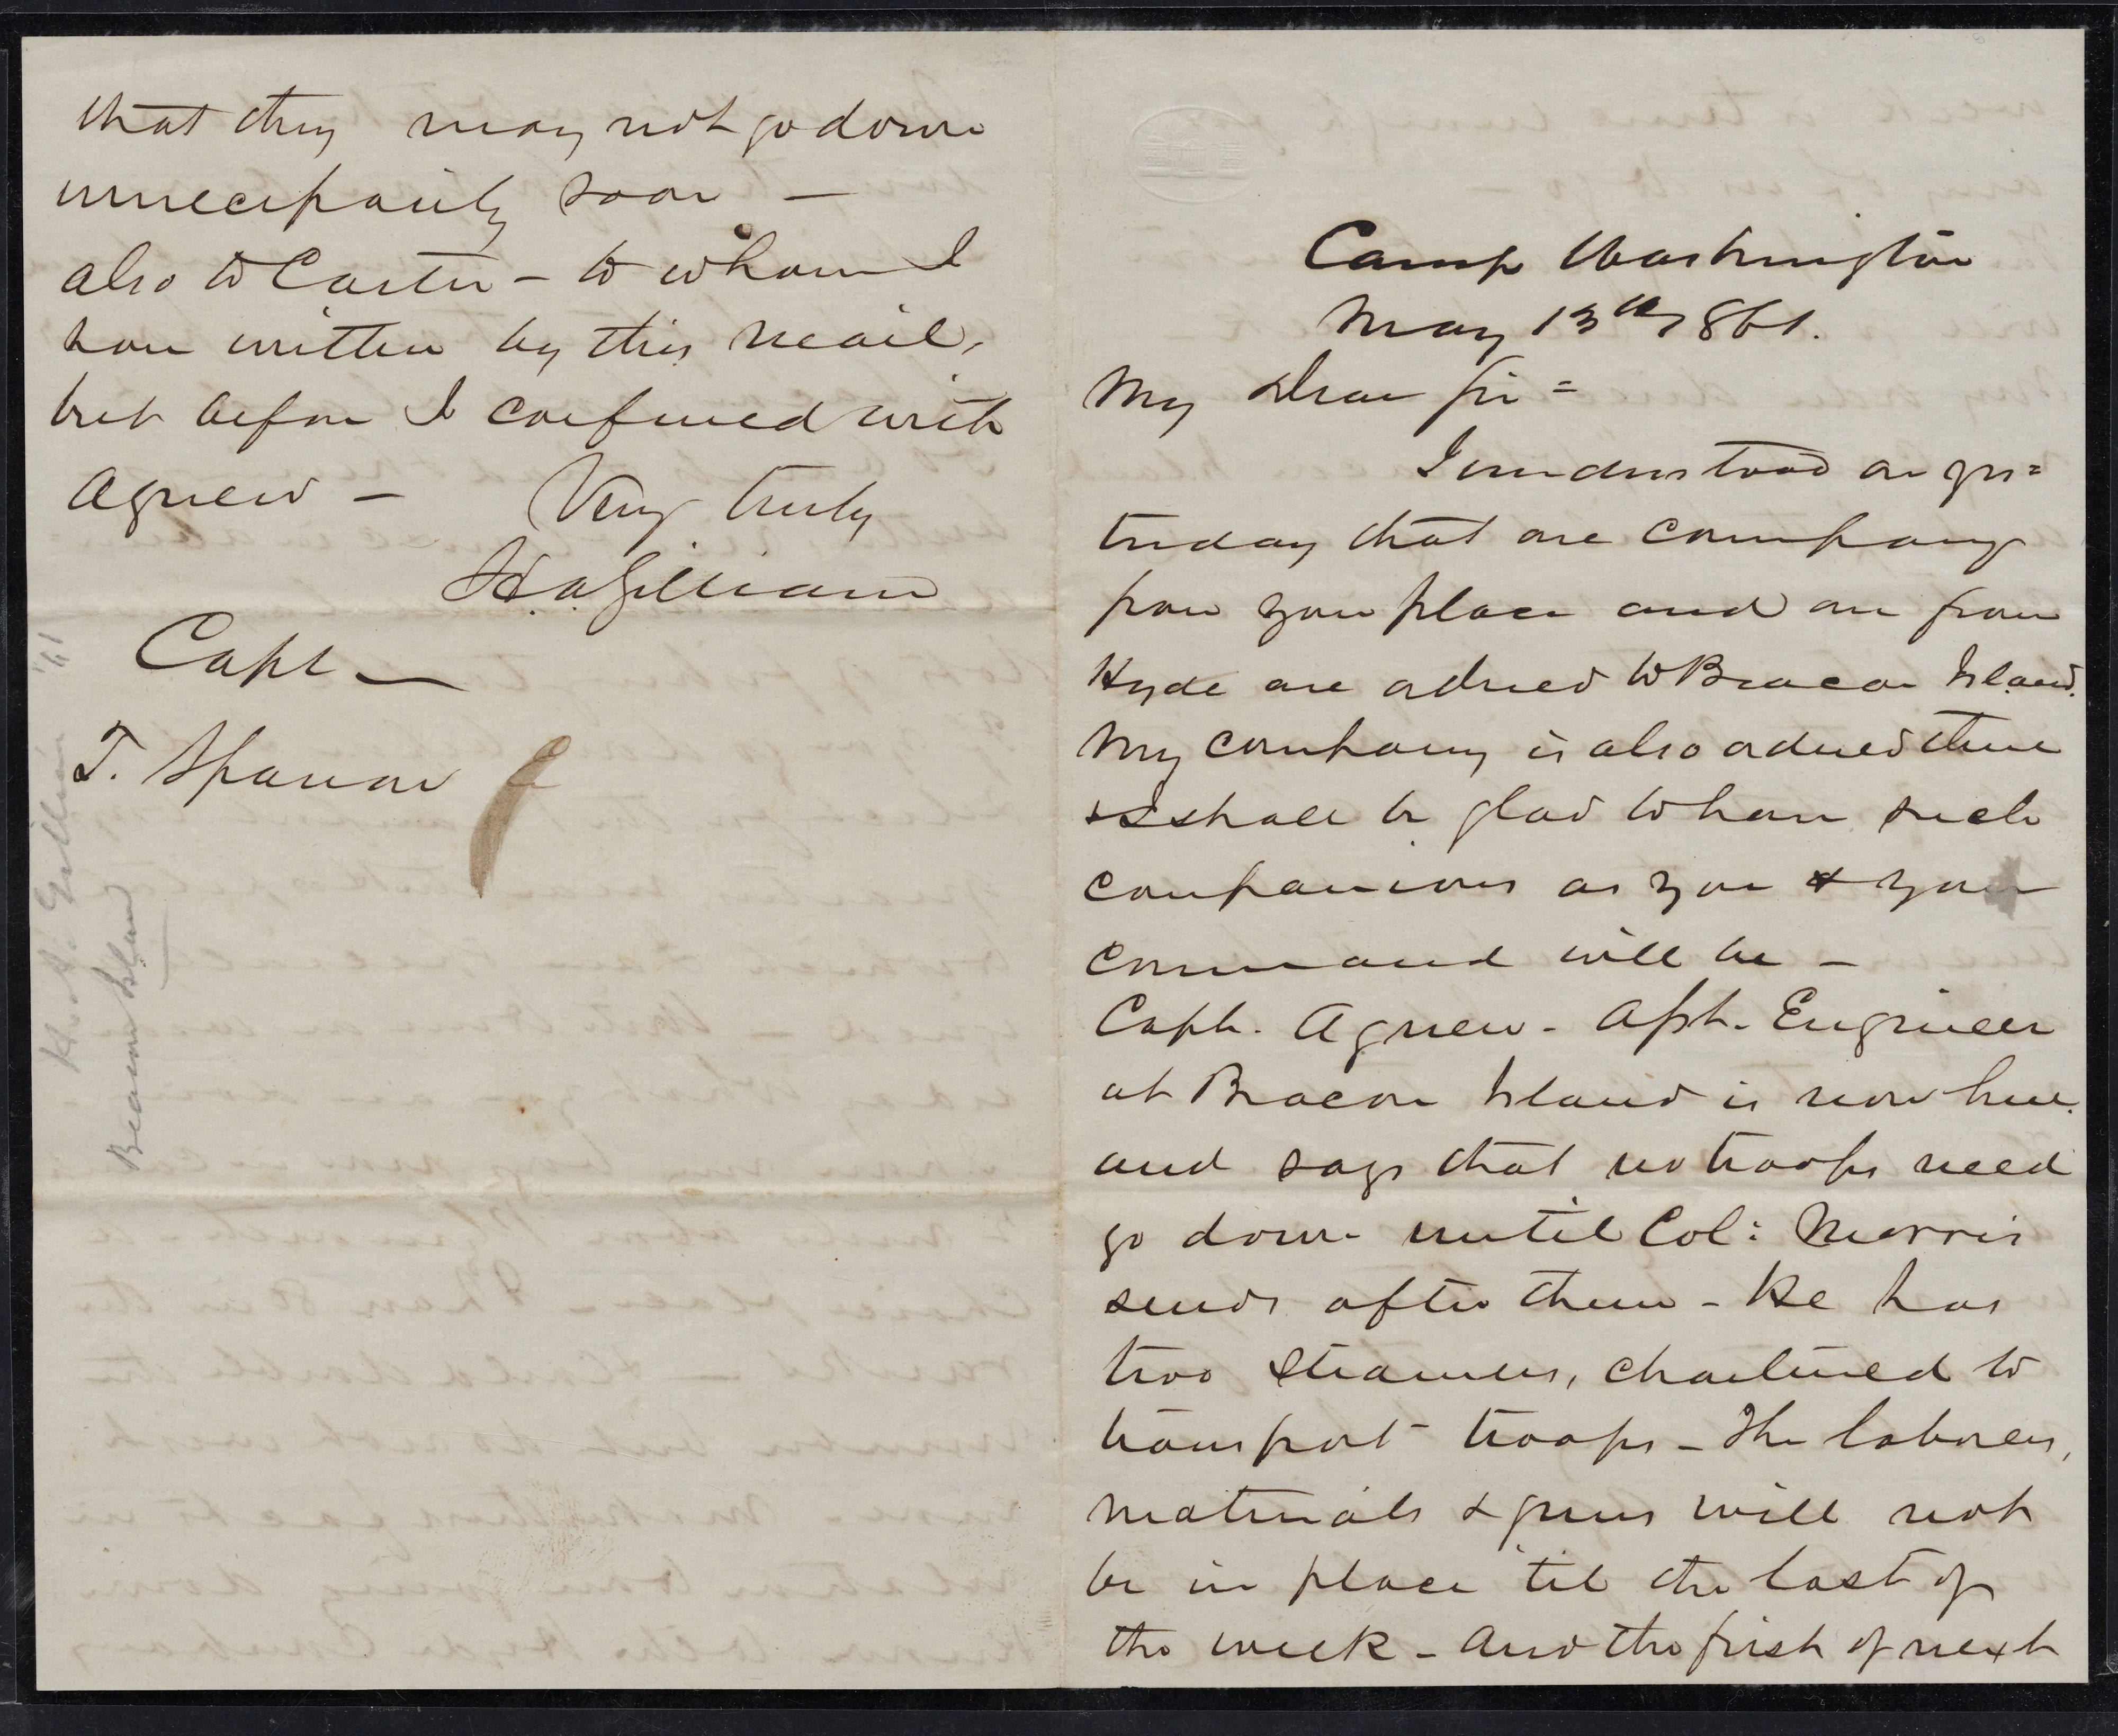 Camp Washington
May 13th 1861.
My Dear Sir =
I understood on yes=
terday that one company
from your place and one from
Hyde are ordered to Beacon Island.
My company is also ordered there
& I shall be glad to have such
companions as you & your
command will be -
Capt. Agnew - Asst. Engineer
at Beacon Island is now here.
and says that no troops need
go down until Col: Morris
sends after them - He has
two steamers, chartered to
transport troops - The laborers,
materials & guns will not
be in place 'til the last of
the week - And the first of next
that they may not go down
unnecessarily soon -
also to Carter - to whom I
have written by this mail,
but before I conferred with
Agnew - Very truly
H.A. Gilliam
Capt -
T. Sparrow
H. A. Gilliam '61
Beacon Island